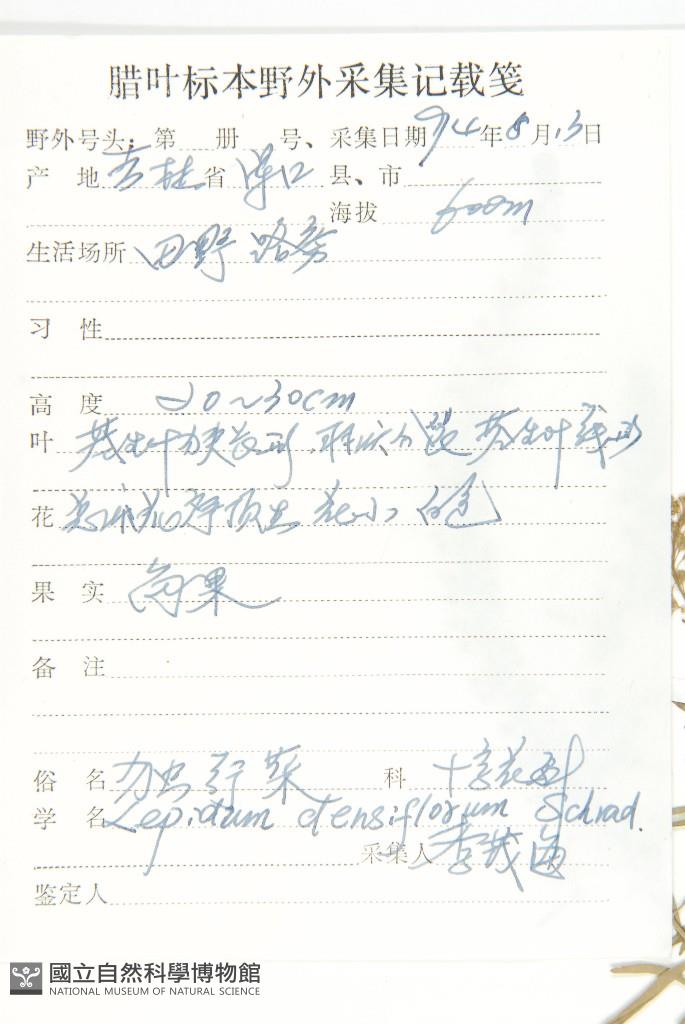 腊叶标本野外采集记载笺
野外号头:第 册 号、采集日期 94年8月13日
产 地 吉林省 浑江 县、市
海拔 600m
生活场所 田野 路旁
习 性
高 度 20~30cm
叶 基生叶 形 羽状分裂 茎生叶 线形
花 总状花序顶生 花小 白色
果 实 角果
备 注
俗 名 科 十字花科
学 名 Lepidium densiflorum Schrad.
采集人 李茂
鉴定人
國立自然科學博物館
NATIONAL MUSEUM OF NATURAL SCIENCE